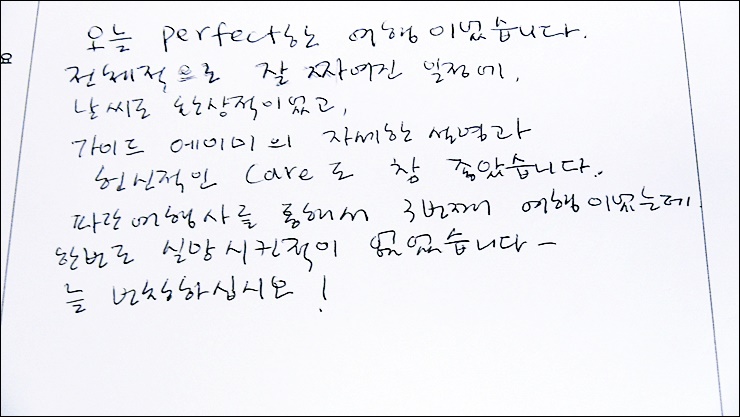 오늘 perfect한 여행이었습니다.
전체적으로 잘 짜여진 일정에,
날씨도 환상적이었고,
가이드 에이미의 자세한 설명과
헌신적인 care도 참 좋았습니다.
파란여행사를 통해서 3번째 여행이었는데
한번도 실망시킨적이 없었습니다-
늘 번창하십시오!